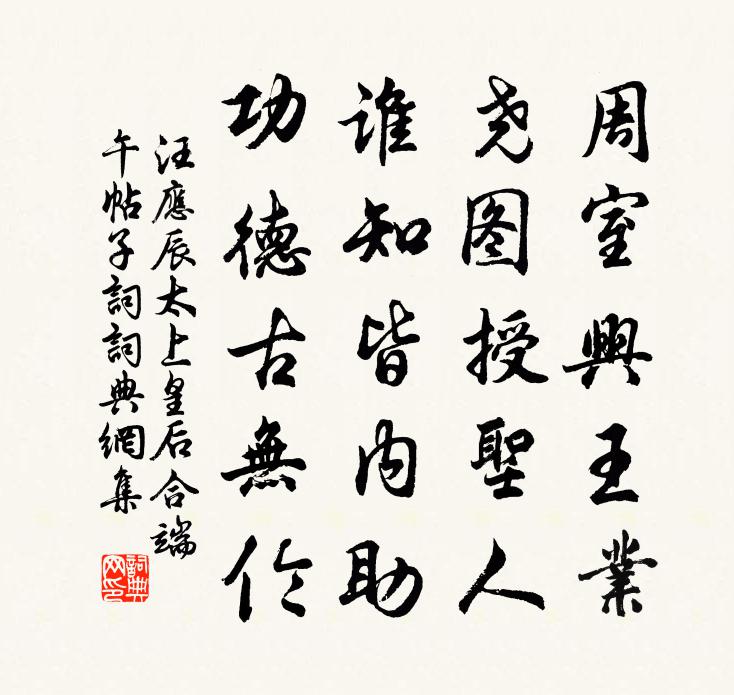 周室興王業
尧图授聖人
誰知皆内助
功德古無伦
汪應辰太上皇后合端
午帖子詞詞典網集
詞典网印